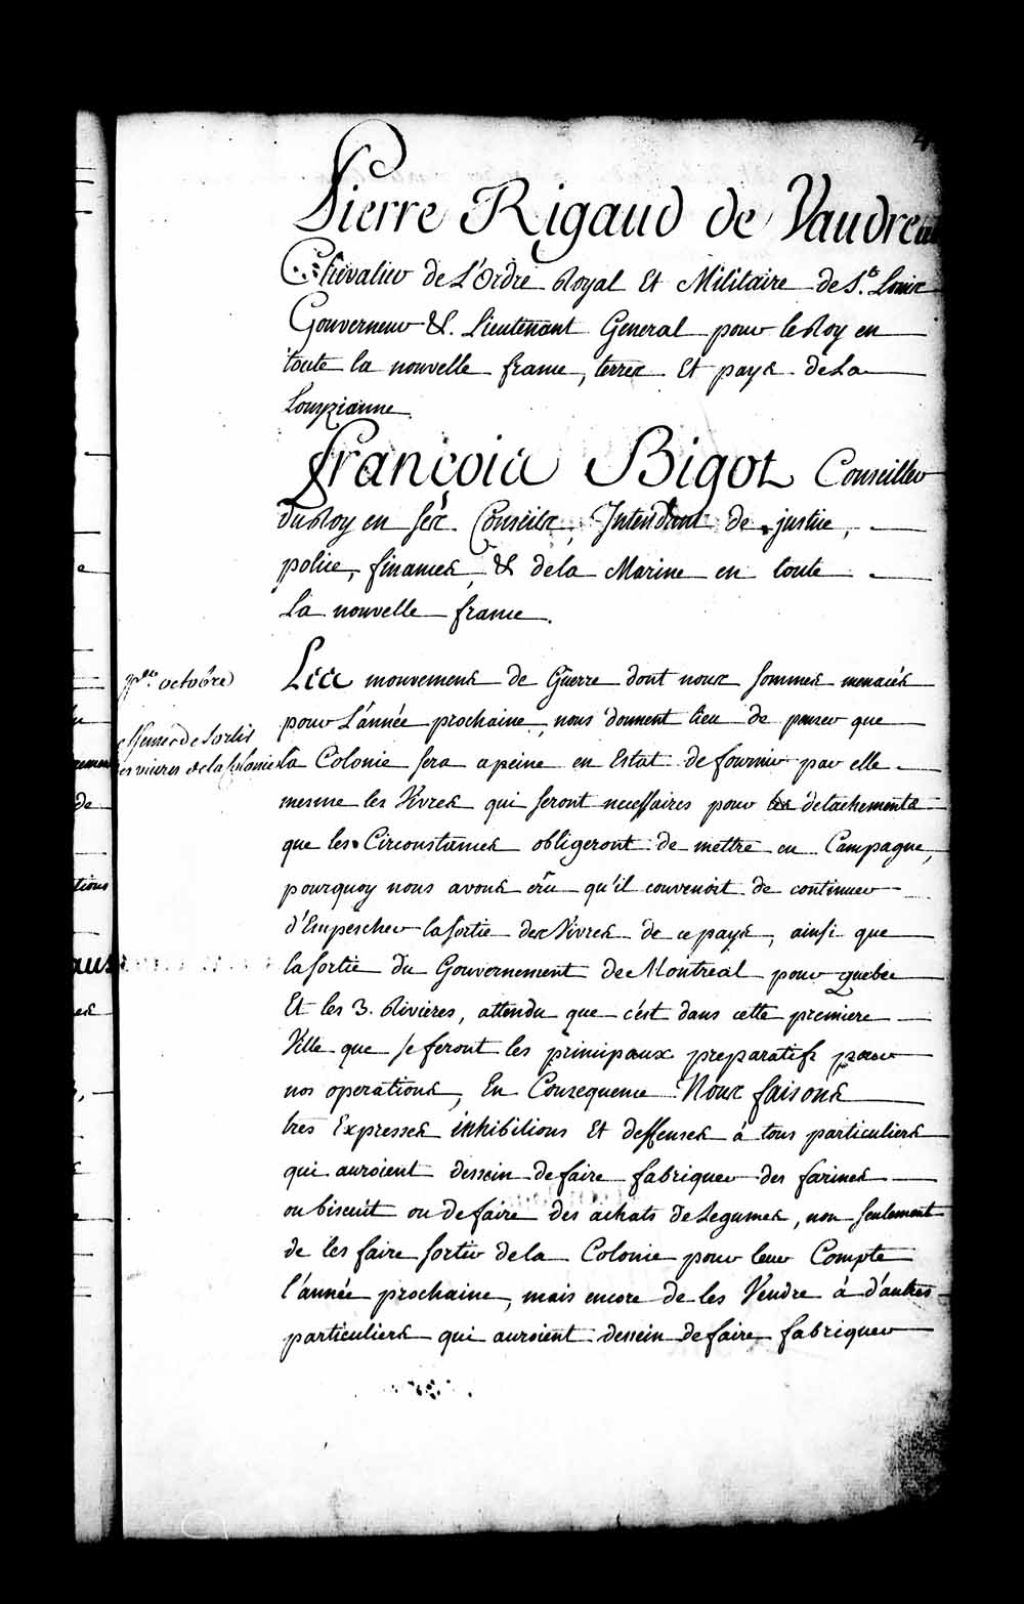 Pierre Rigaud de Vaudreuil
Chevalier de L'Ordre Royal Et Militaire de St. Louis
Gouverneur & Lieutenant General pour le Roy en
toute la nouvelle france, terres Et pays de La
Louyzianne.
françois Bigot Conseiller
du Roy en ses Conseils, Intendant de justice,
police, finances, & de la Marine en toute
La nouvelle france.
octobre
deffenses de Sortir
les vivres de la Colonie
Les mouvemens de Guerre dont nous sommes menacés
pour L'année prochaine, nous donnent lieu de penser que
la Colonie sera a peine en Estat de fournir par elle
mesme les Vivres qui seront necessaires pour les detachements
que les Circonstances obligeront de mettre en Campagne,
pourquoy nous avons crû qu'il convenoit de continuer
d'Empescher la sortie des Vivres de ce pays, ainsi que
la sortie du Gouvernement de Montreal pour quebec
Et les 3. Rivieres, attendu que c'est dans cette premiere
Ville que se feront les principaux preparatifs pour
nos operations, En Consequence Nous faisons
tres Expresses inhibitions Et deffenses á tous particuliers
qui auroient dessein de faire fabriquer des farines
ou biscuit ou de faire des achats de Legumes, non seulement
de les faire sortir de la Colonie pour leur Compte
l'année prochaine, mais encore de les Vendre á d'autres
particuliers qui auroient dessein de faire fabriquer